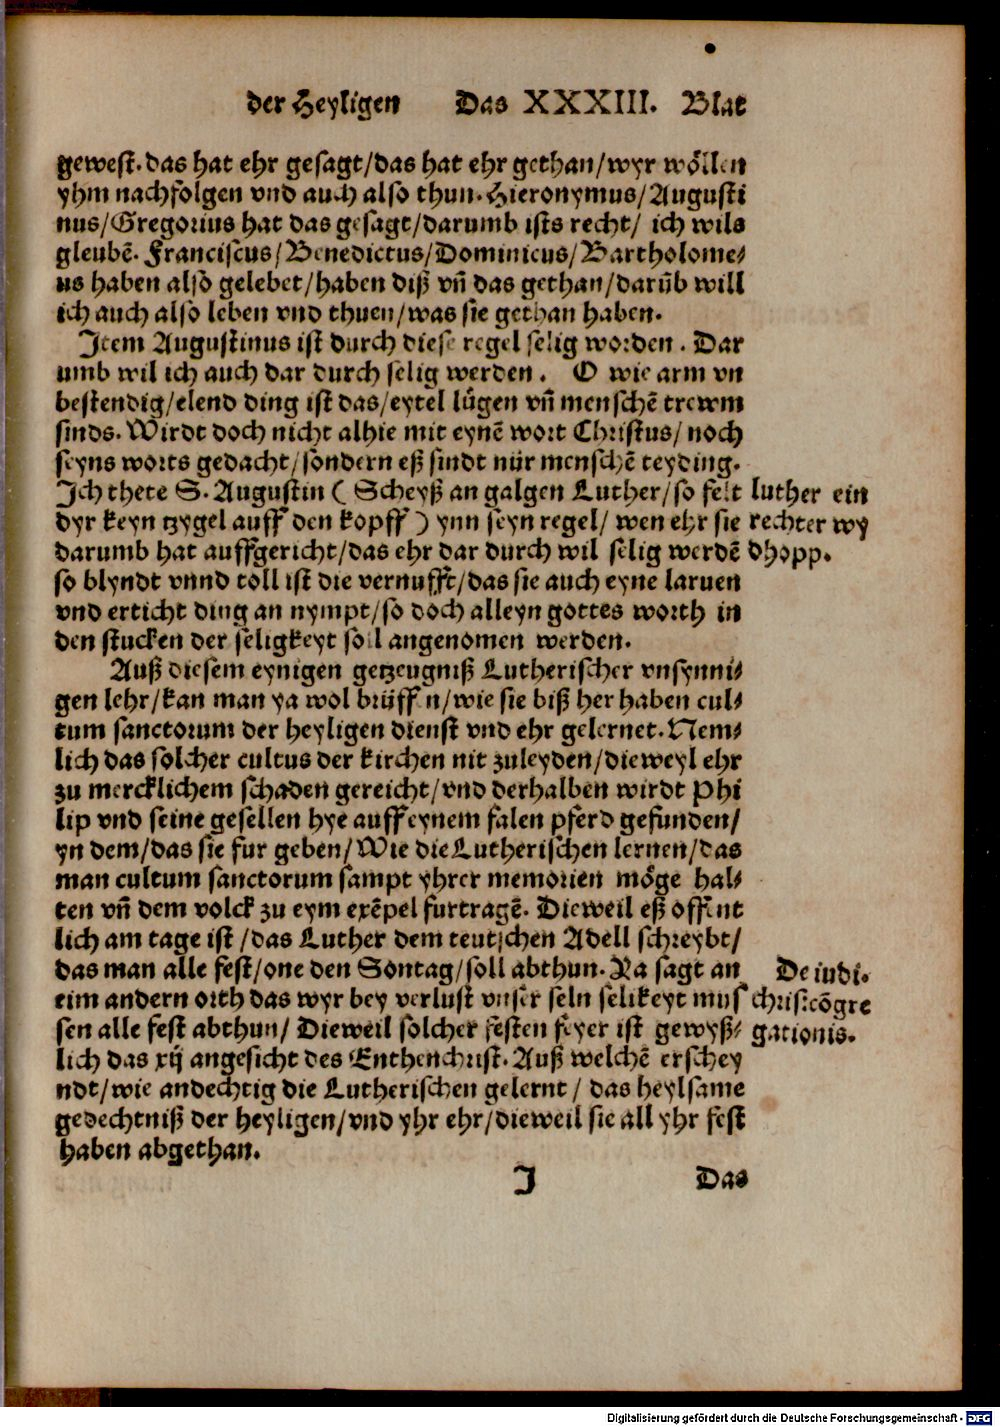 der Heyligen Das XXXIII. Blat
gewest. das hat ehr gesagt/das hat ehr gethan/wyr wöllen
yhm nachfolgen vnd auch also thun. Hieronymus/Augusti
nus/Gregorius hat das gesagt/darumb ists recht/ ich wils
gleubē. Franciscus/Benedictus/Dominicus/Bartholome⸗
us haben also gelebet/haben diß vñ das gethan/darũb will
ich auch also leben vnd thuen/was sie gethan haben.
Item Augustinus ist durch diese regel selig worden. Dar
umb wil ich auch dar durch selig werden. O wie arm vn
bestendig/elend ding ist das/eytel lůgen vñ menschē trewm
sinds. Wirdt doch nicht alhie mit eynē wort Christus/ noch
seyns worts gedacht/sondern eß sindt nür menschē teyding.
Ich thete S. Augustin ( Scheyß an galgen Luther/so felt
dyr keyn tzygel auff den kopff ) ynn seyn regel/ wen ehr sie
darumb hat auffgericht/das ehr dar durch wil selig werdē
luther ein
rechter wy
dhopp.
so blyndt vnnd toll ist die vernufft/das sie auch eyne laruen
vnd erticht ding an nympt/so doch alleyn gottes worth in
den stucken der seligkeyt soll angenomen werden.
Auß diesem eynigen getzeugniß Lutherischer vnsynni⸗
gen lehr/kan man ya wol brüffen/wie sie biß her haben cul⸗
tum sanctorum der heyligen dienst vnd ehr gelernet. Nem⸗
lich das solcher cultus der kirchen nit zuleyden/dieweyl ehr
zu mercklichem schaden gereicht/vnd derhalben wirdt Phi
lip vnd seine gesellen hye auff eynem falen pferd gefunden/
yn dem/das sie fur geben/Wie die Lutherischen lernen/das
man cultum sanctorum sampt yhrer memorien möge hal⸗
ten vñ dem volck zu eym exēpel furtragē. Dieweil eß offent
lich am tage ist /das Luther dem teutschen Adell schreybt/
das man alle fest/one den Sontag/soll abthun. Ya sagt an
eim andern orth das wyr bey verlust vnser seln selikeyt mus
sen alle fest abthun/ Dieweil solcher festen feyer ist gewyß⸗
De iudi.
chris. cōgre
gationis.
lich das xij angesicht des Enthenchrist. Auß welchē erschey
ndt/wie andechtig die Lutherischen gelernt / das heylsame
gedechtniß der heyligen/vnd yhr ehr/dieweil sie all yhr fest
haben abgethan.
J Das
Digitalisierung gefördert durch die Deutsche Forschungsgemeinschaft - DFG